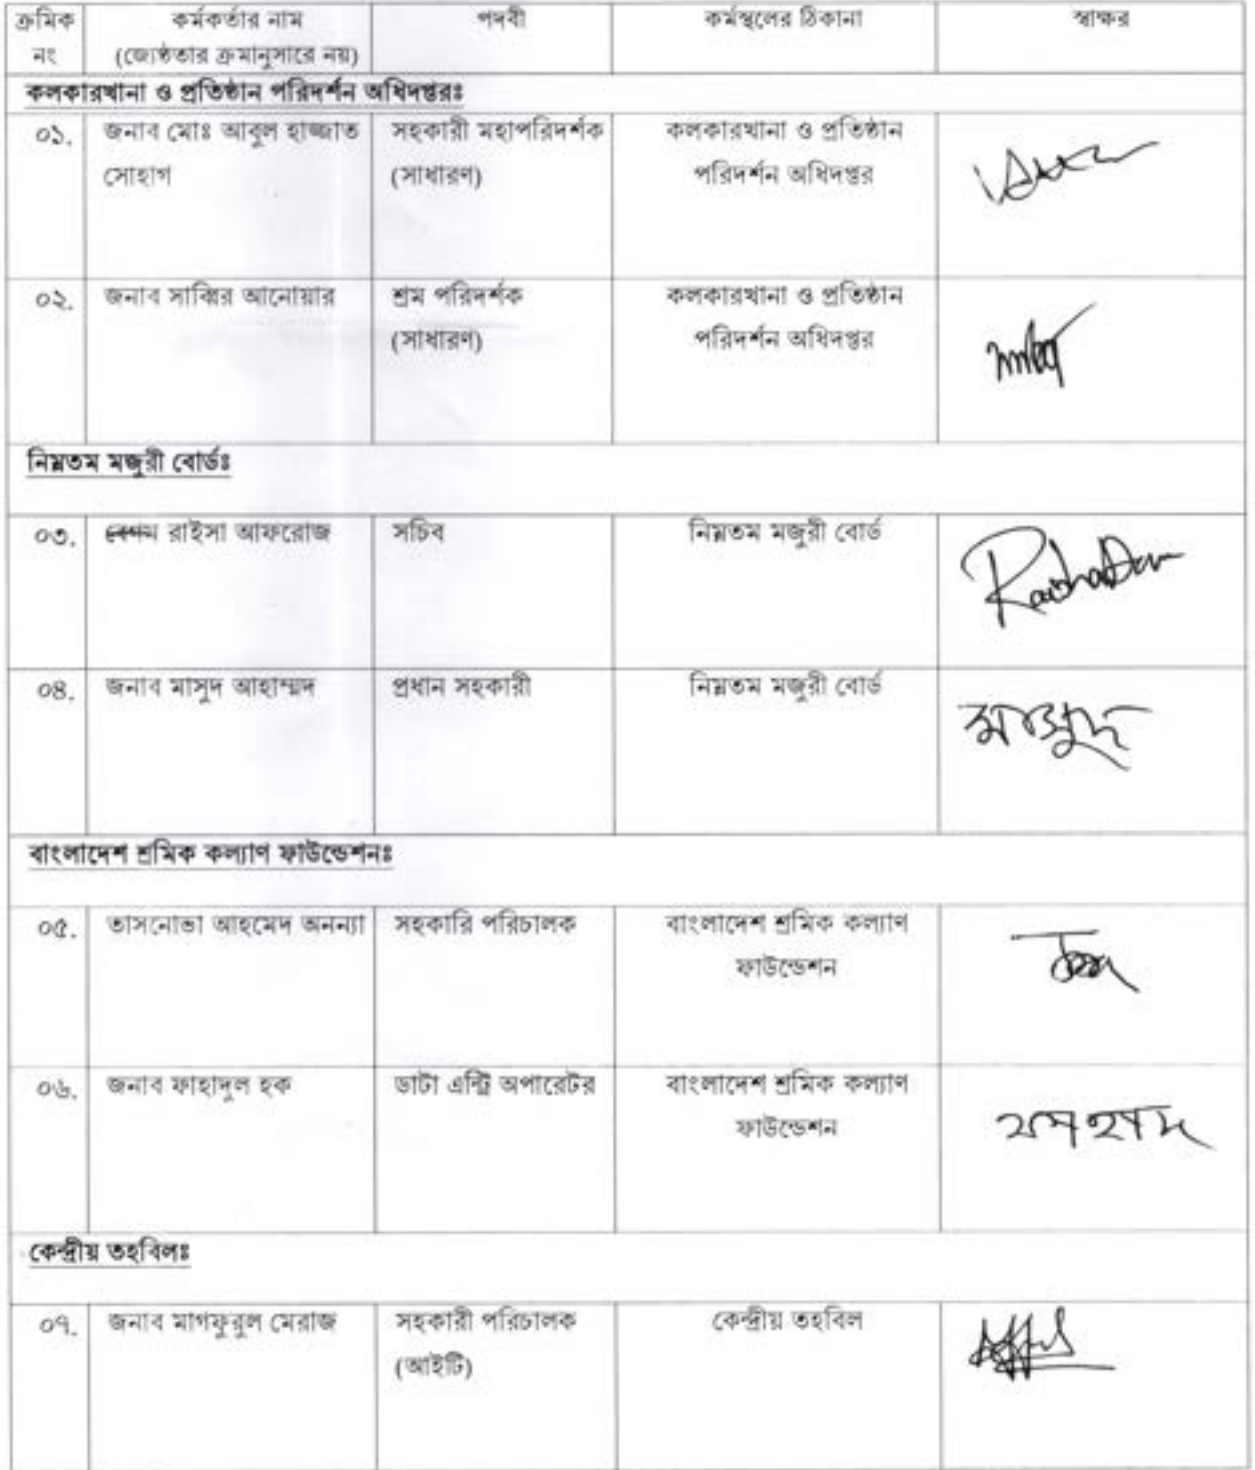 ক্রমিক নং কর্মকর্তার নাম (জ্যেষ্ঠতার ক্রমানুসারে নয়) পদবী কর্মস্থলের ঠিকানা স্বাক্ষর
কলকারখানা ও প্রতিষ্ঠান পরিদর্শন অধিদপ্তরঃ
০১. জনাব মোঃ আবুল হাজ্জাত সহকারী মহাপরিদর্শক কলকারখানা ও প্রতিষ্ঠান
সোহাগ (সাধারণ) পরিদর্শন অধিদপ্তর
০২. জনাব সাব্বির আনোয়ার শ্রম পরিদর্শক কলকারখানা ও প্রতিষ্ঠান
(সাধারণ) পরিদর্শন অধিদপ্তর
নিম্নতম মজুরী বোর্ডঃ
০৩. বেগম রাইসা আফরোজ সচিব নিম্নতম মজুরী বোর্ড
০৪. জনাব মাসুদ আহাম্মদ প্রধান সহকারী নিম্নতম মজুরী বোর্ড
মাসুদ
বাংলাদেশ শ্রমিক কল্যাণ ফাউন্ডেশনঃ
০৫. তাসনোভা আহমেদ অনন্যা সহকারি পরিচালক বাংলাদেশ শ্রমিক কল্যাণ
ফাউন্ডেশন
০৬. জনাব ফাহাদুল হক ডাটা এন্ট্রি অপারেটর বাংলাদেশ শ্রমিক কল্যাণ
ফাউন্ডেশন ফাহাদ
কেন্দ্রীয় তহবিলঃ
০৭. জনাব মাগফুরুল মেরাজ সহকারী পরিচালক কেন্দ্রীয় তহবিল
(আইটি)